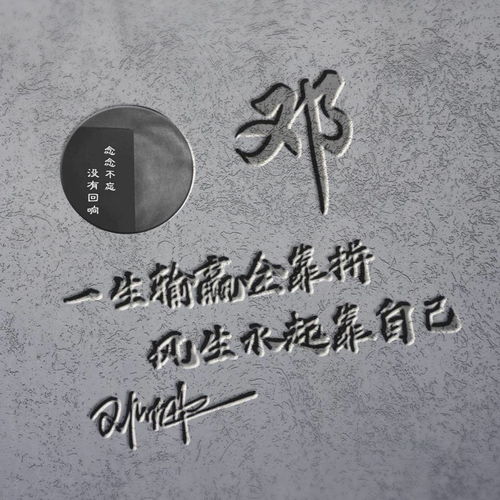 邓
念念不忘
没有回响
一生输赢全靠拼
风生水起靠自己